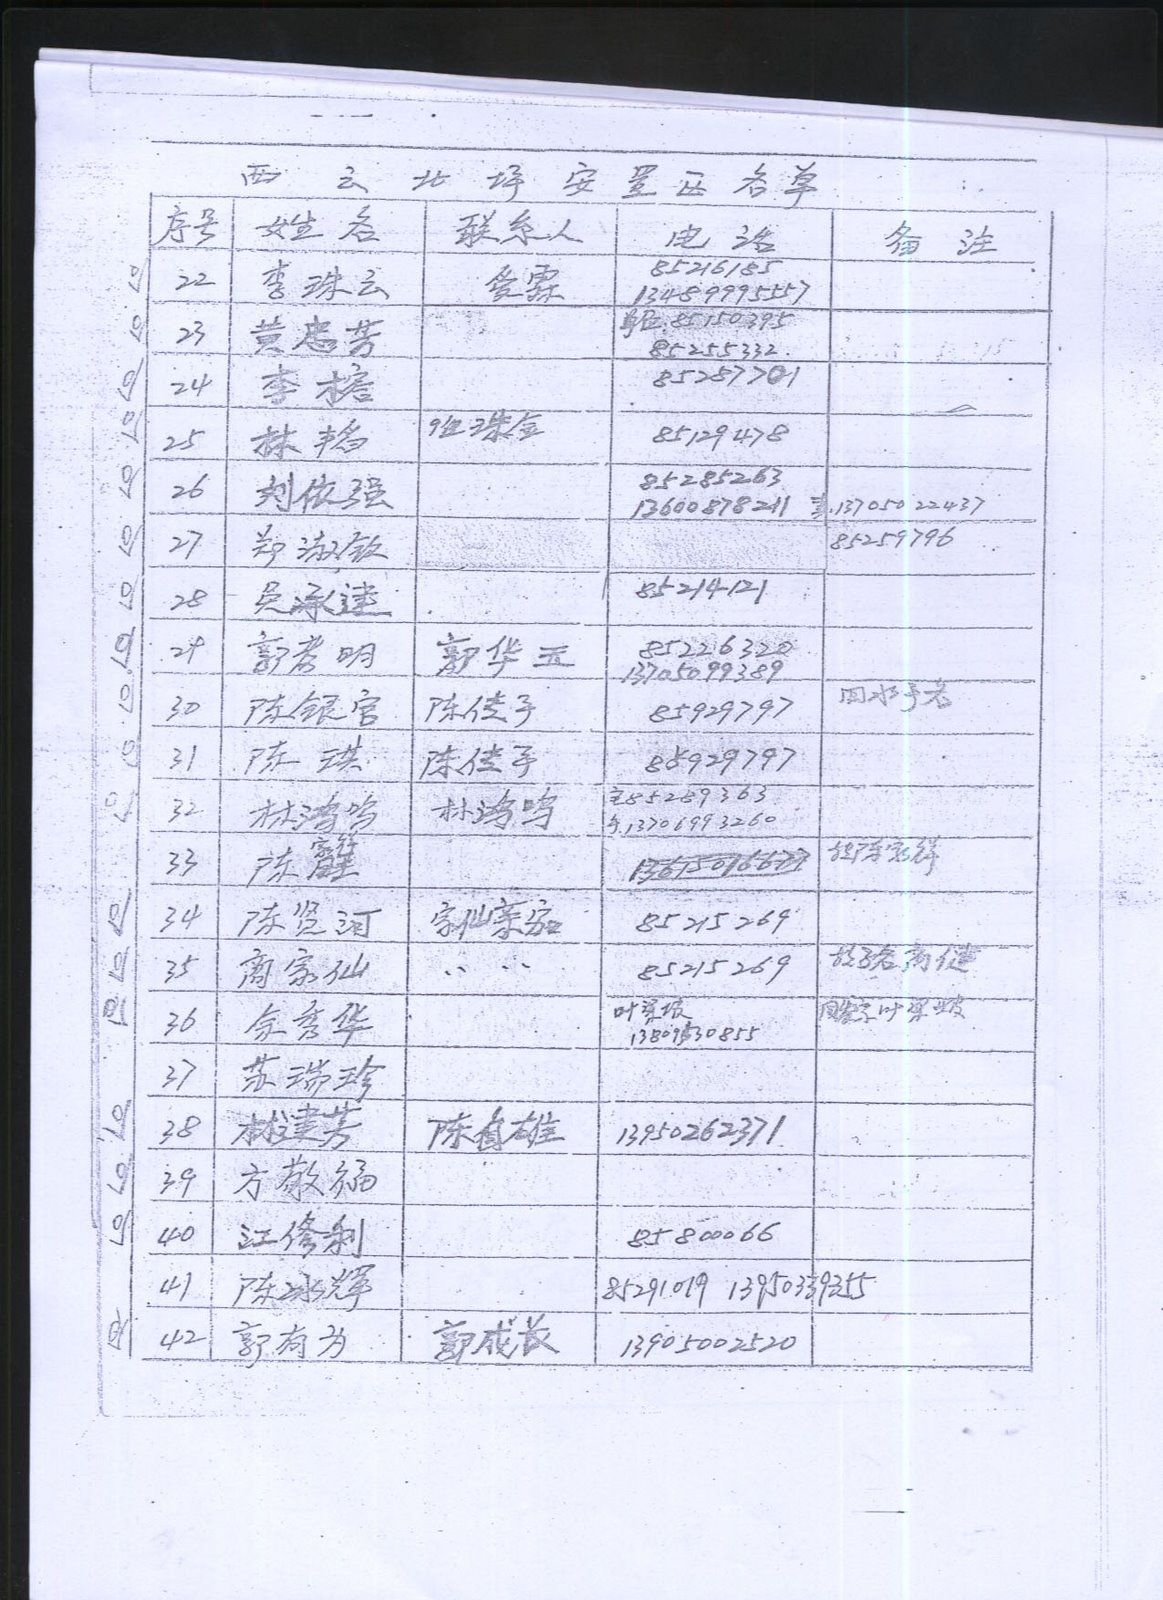 西云北坪安置区名单
序号 姓名 联系人 电话 备注
22 李珠云 85216185
13489995557
23 黄忠芳 85150395
85255332
24 李榕 85287701
25 林 珠金 85129478
26 刘依强 85285263
13600878211 13705022437
27 郑淑钦 85259796
28 吴承建 85214121
29 郭孝明 郭华玉 85226320
13705099389
30 陈银官 陈佳手 85929797
31 陈琪 陈佳手 85929797
32 林鸿鸣 林鸿鸣 宅85289363
13706993260
33 陈 13615016677
34 陈贤河 家仙亲家 85215269
35 商家仙 〃 〃 85215269
36 余秀华 叶
13809530855
37 苏瑞珍
38 林建芳 陈自雄 13950262371
39 方敬
40 江修利 85800066
41 陈冰辉 85291019 13950339355
42 郭有为 郭成长 13905002520